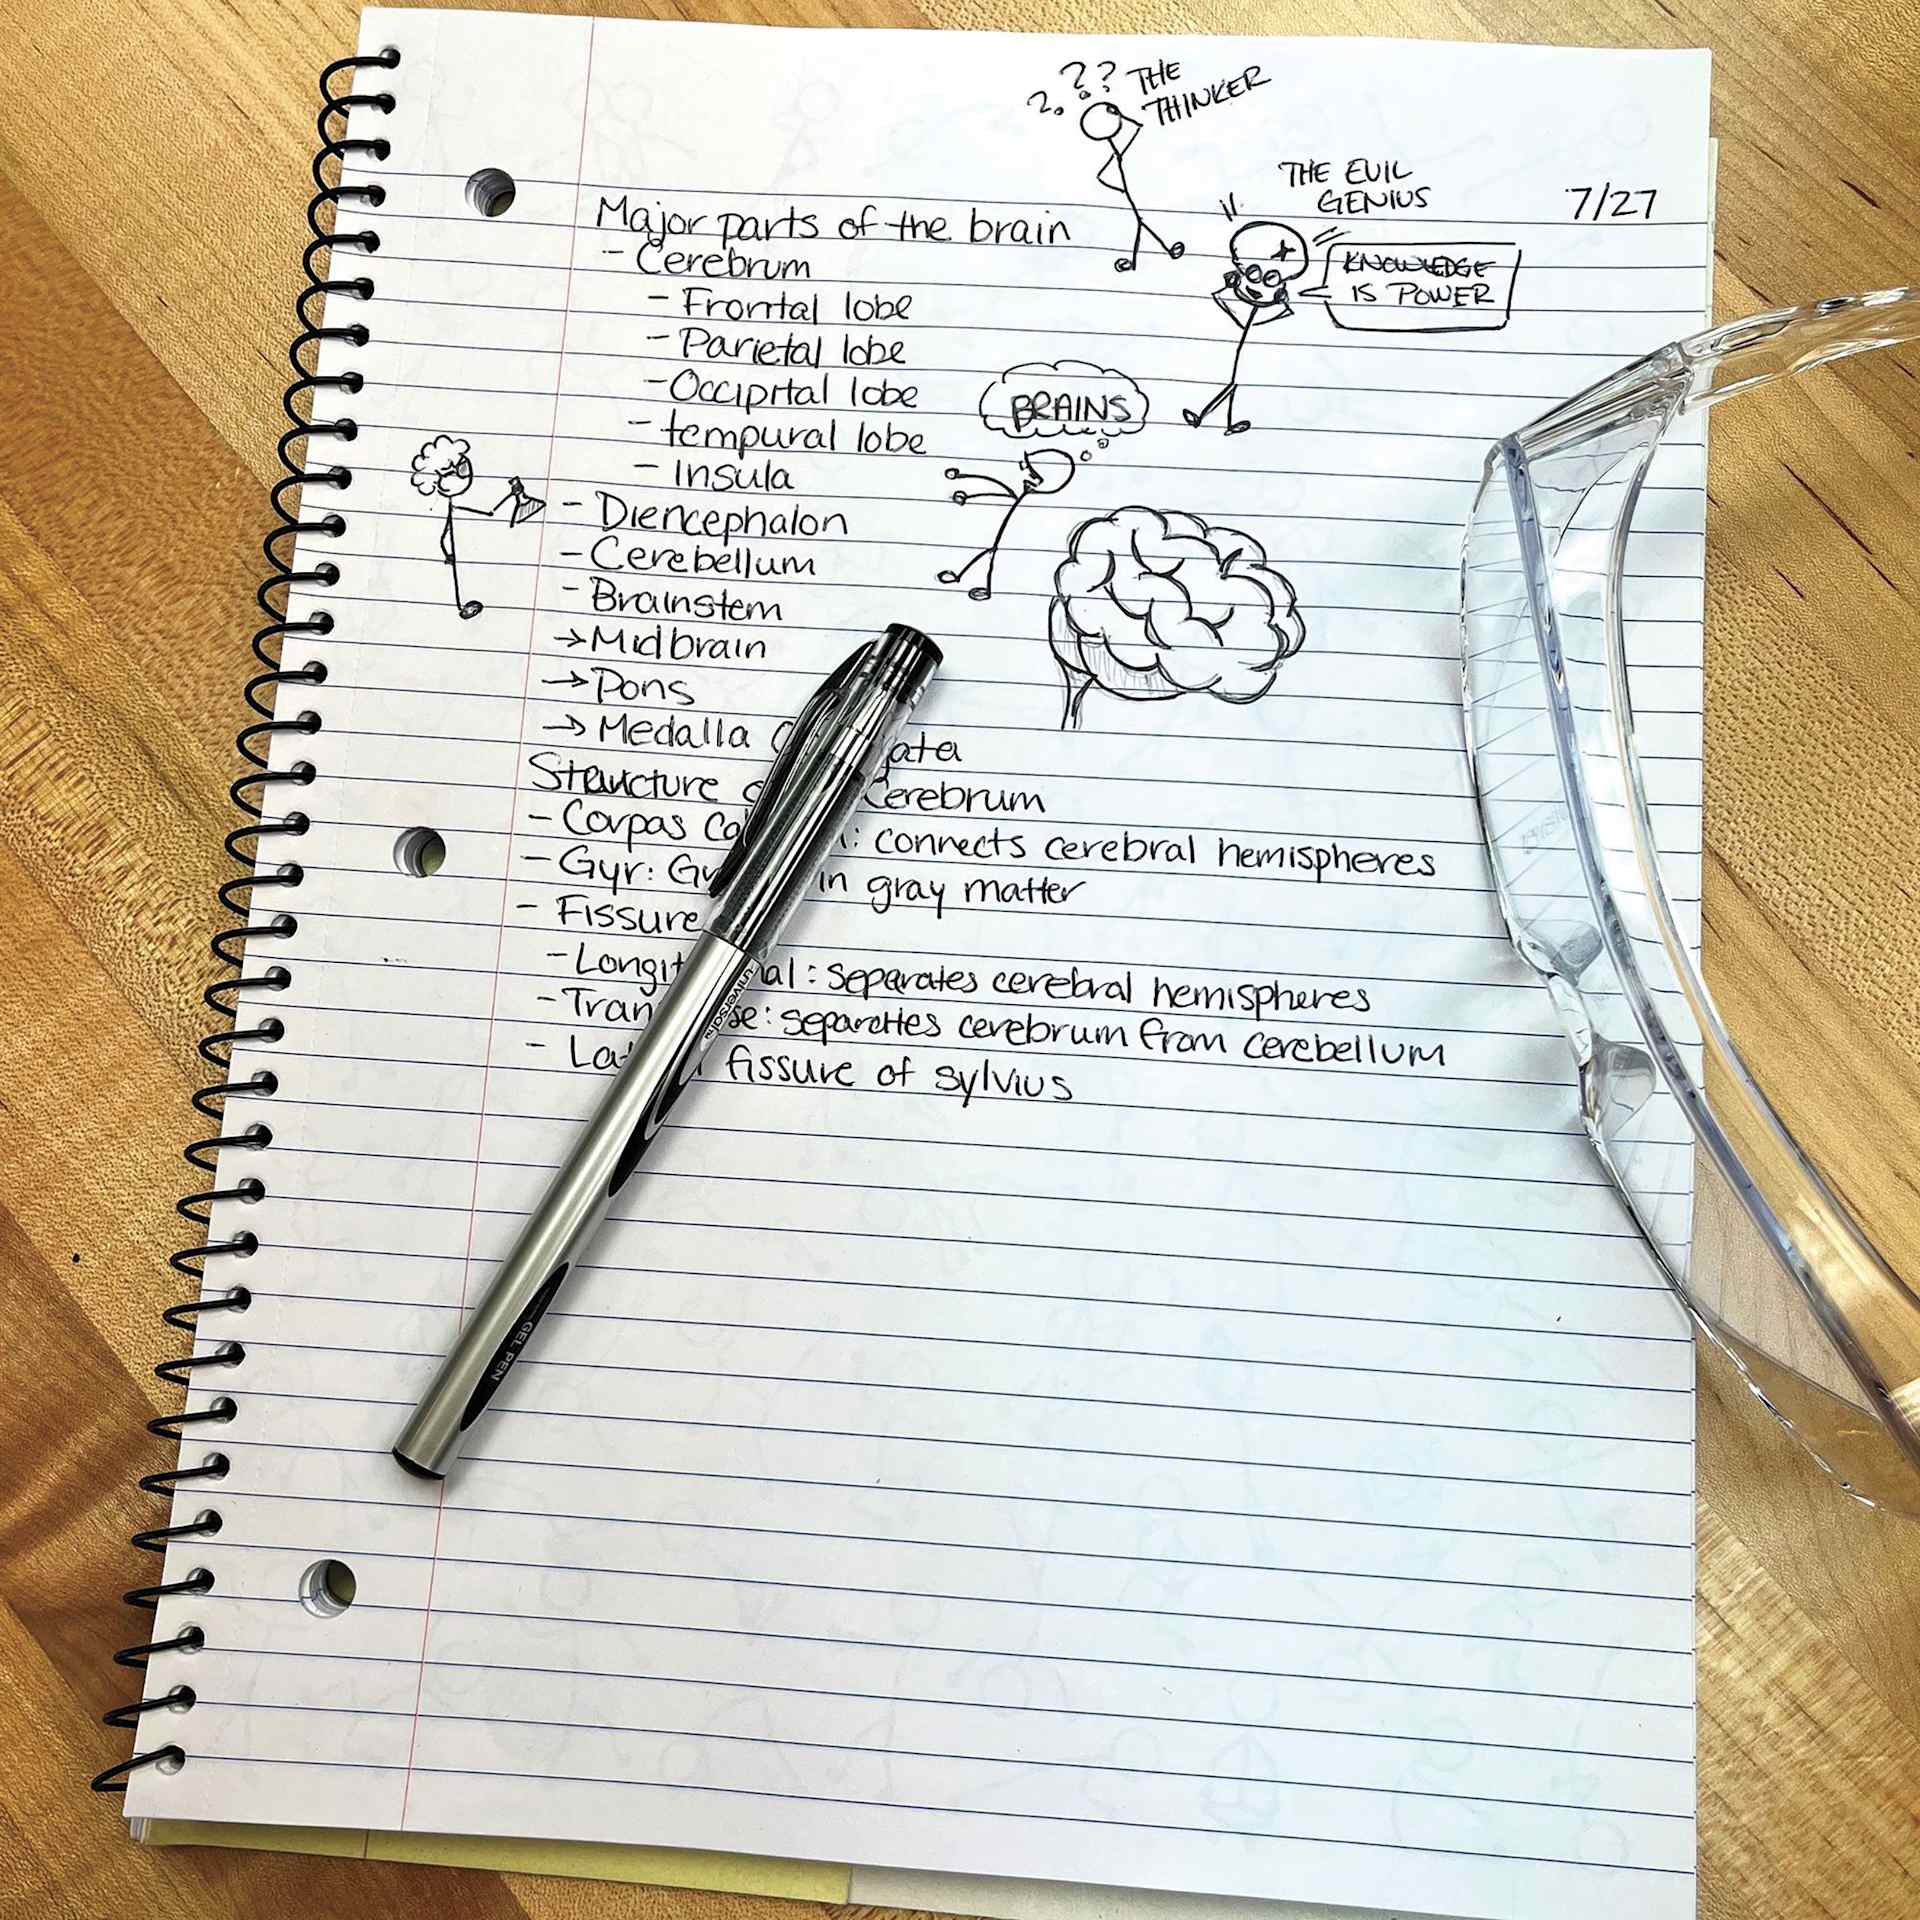 ? ? ? THE
THINKER
THE EVIL
GENIUS
7/27
KNOWLEDGE
IS POWER
Major parts of the brain
- Cerebrum
- Frontal lobe
- Parietal lobe
- Occipital lobe
- tempural lobe
- Insula
BRAINS
- Diencephalon
- Cerebellum
- Brainstem
→ Midbrain
→ Pons
→ Medalla
Structure Cerebrum
- Corpas : connects cerebral hemispheres
- Gyr: in gray matter
- Fissure
- : separates cerebral hemispheres
- : separates cerebrum from cerebellum
- fissure of sylvius
universal
GEL PEN